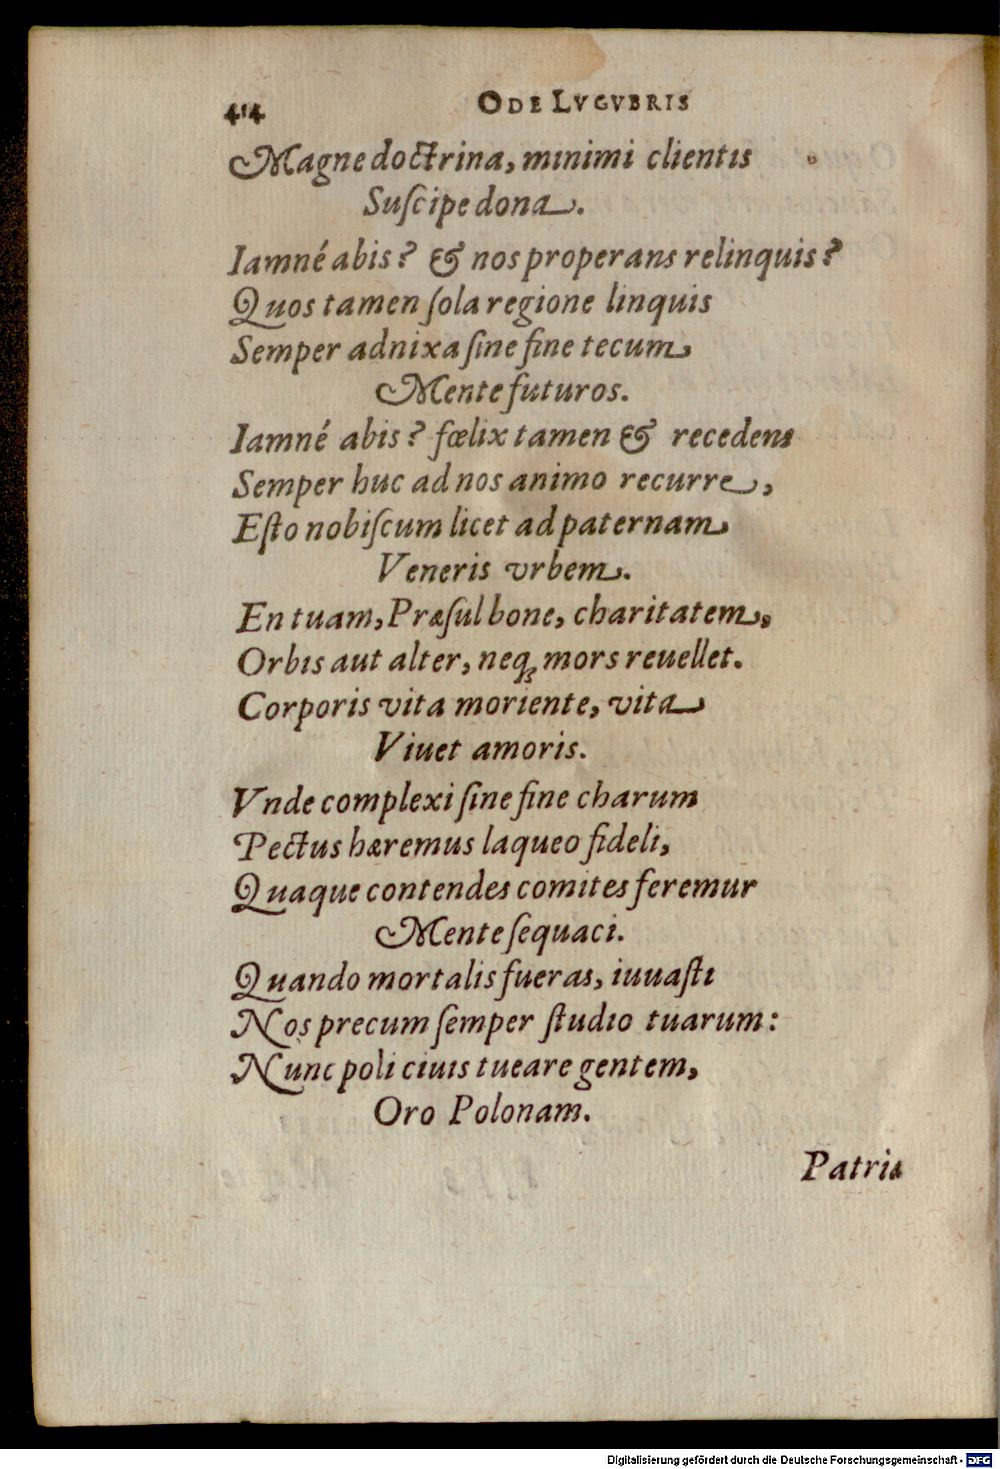 414 ODE LVGVBRIS
Magne doctrina, minimi clientis
Suſcipe dona.
Iamné abis? & nos properans relinquis?
Quos tamen ſola regione linquis
Semper adnixa ſine fine tecum
Mente futuros.
Iamné abis? fœlix tamen & recedens
Semper huc ad nos animo recurre,
Eſto nobiſcum licet ad paternam
Veneris vrbem.
En tuam, Præſul bone, charitatem,
Orbis aut alter, neqꝫ mors reuellet.
Corporis vita moriente, vita
Viuet amoris.
Vnde complexi ſine fine charum
Pectus hæremus laqueo fideli,
Quaque contendes comites feremur
Mente ſequaci.
Quando mortalis fueras, iuuaſti
Nos precum ſemper ſtudio tuarum:
Nunc poli ciuis tueare gentem,
Oro Polonam.
Patria
Digitalisierung gefördert durch die Deutsche Forschungsgemeinschaft - DFG